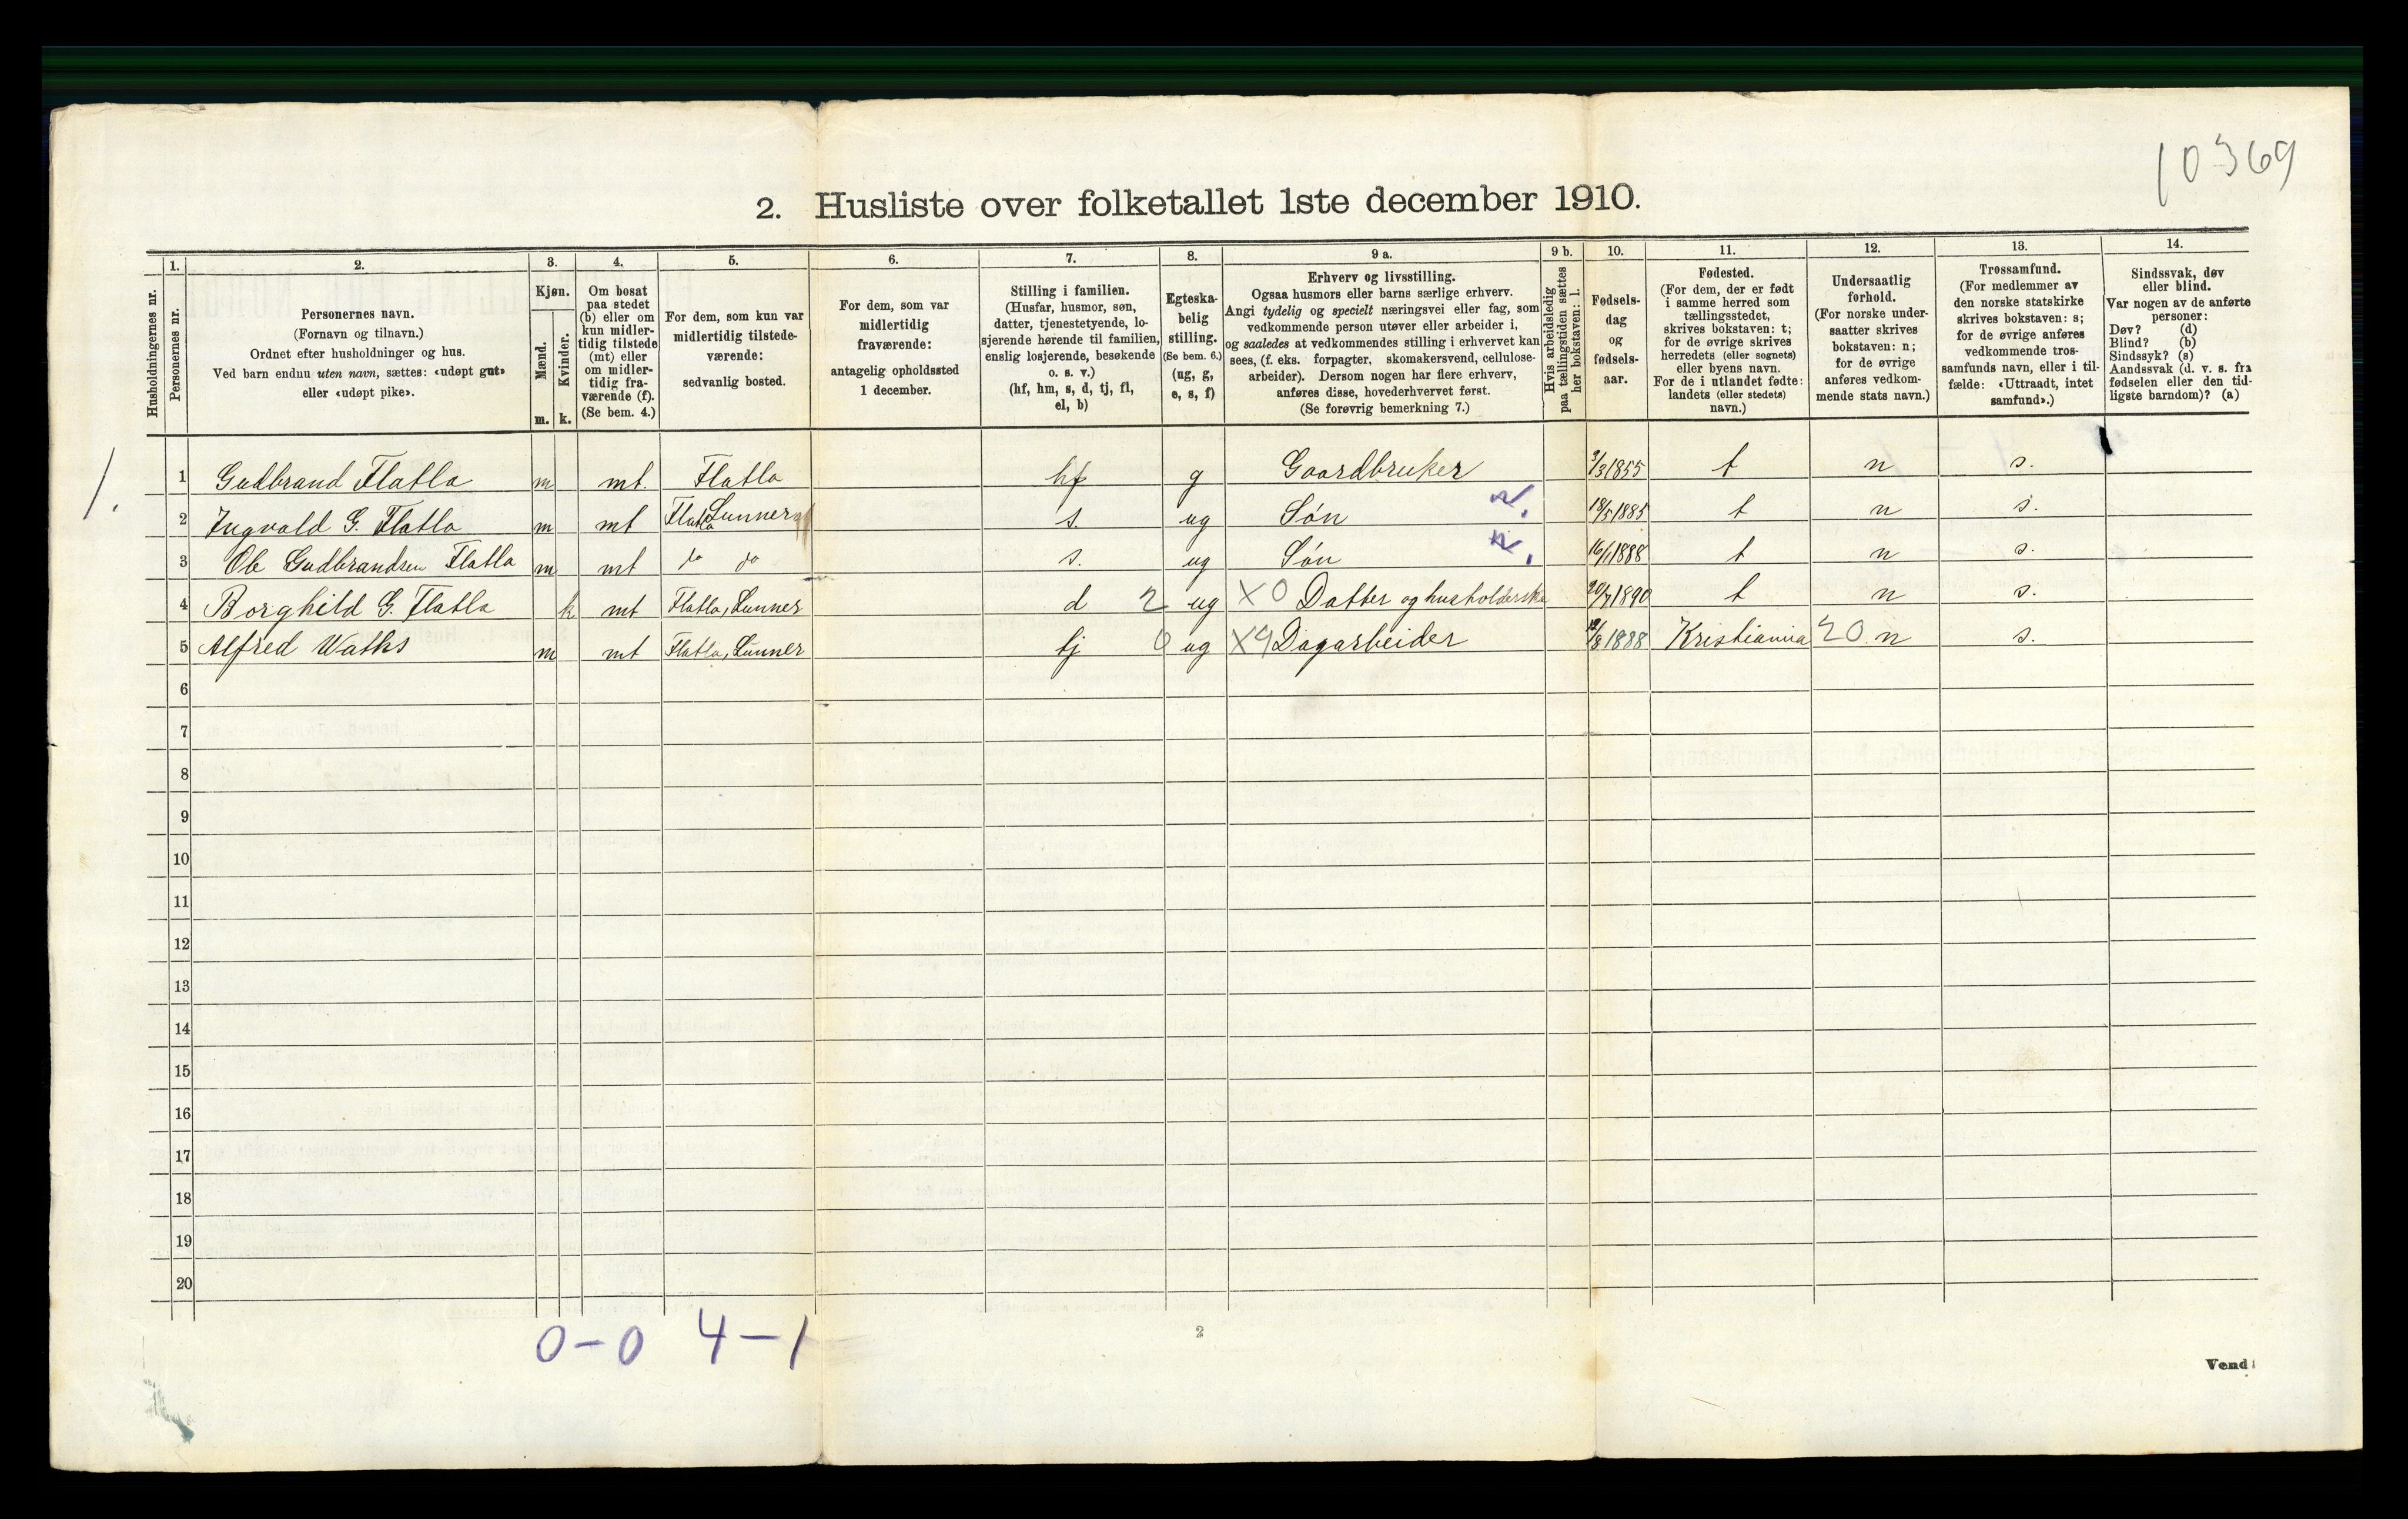 10369
2. Husliste over folketallet 1ste december 1910.
Husholdningernes nr.
1.
Personernes nr.
2.
Personernes navn.
(Fornavn og tilnavn.)
Ordnet efter husholdninger og hus.
Ved barn endnu uten navn, sættes: «udøpt gut»
eller «udøpt pike».
3.
Kjøn.
Mænd.
Kvinder.
m. k.
4.
Om bosat
paa stedet
(b) eller om
kun midler-
tidig tilstede
(mt) eller
om midler-
tidig fra-
værende (f).
(Se bem. 4.)
5.
For dem, som kun var
midlertidig tilstede-
værende:
sedvanlig bosted.
6.
For dem, som var
midlertidig
fraværende:
antagelig opholdssted
1 december.
7.
Stilling i familien.
(Husfar, husmor, søn,
datter, tjenestetyende, lo-
sjerende hørende til familien,
enslig losjerende, besøkende
o. s. v.)
(hf, hm, s, d, tj, fl,
el, b)
8.
Egteska-
belig
stilling.
(Se bem. 6.)
(ug, g,
e, s, f)
9 a.
Erhverv og livsstilling.
Ogsaa husmors eller barns særlige erhverv.
Angi tydelig og specielt næringsvei eller fag, som
vedkommende person utøver eller arbeider i,
og saaledes at vedkommendes stilling i erhvervet kan
sees, (f. eks. forpagter, skomakersvend, cellulose-
arbeider). Dersom nogen har flere erhverv,
anføres disse, hovederhvervet først.
(Se forøvrig bemerkning 7.)
9 b.
Hvis arbeidsledig
paa tællingstiden sættes
her bokstaven: l.
10.
Fødsels-
dag
og
fødsels-
aar.
11.
Fødested.
(For dem, der er født
i samme herred som
tællingsstedet,
skrives bokstaven: t;
for de øvrige skrives
herredets (eller sognets)
eller byens navn.
For de i utlandet fødte:
landets (eller stedets)
navn.)
12.
Undersaatlig
forhold.
(For norske under-
saatter skrives
bokstaven: n;
for de øvrige
anføres vedkom-
mende stats navn.)
13.
Trossamfund.
(For medlemmer av
den norske statskirke
skrives bokstaven: s;
for de øvrige anføres
vedkommende tros-
samfunds navn, eller i til-
fælde: «Uttraadt, intet
samfund».)
14.
Sindssvak, døv
eller blind.
Var nogen av de anførte
personer:
Døv? (d)
Blind? (b)
Sindssyk? (s)
Aandssvak (d. v. s. fra
fødselen eller den tid-
ligste barndom)? (a)
1. 1 Gudbrand Flatla m mt. Flatla hf g Gaardbruker 3/3 1855 t n s.
2 Ingvald G. Flatla m mt Flatla Lunner s. ug Søn 18/5 1885 t n s.
3 Ole Gudbrandsen Flatla m mt do do s. ug Søn 16/1 1888 t n s.
4 Borghild G. Flatla k mt Flatla, Lunner d 2 ug X0 Datter og husholderske 20/7 1890 t n s.
5 Alfred Waths m mt Flatla, Lunner tj 0 ug X9 Dagarbeider /8 1888 Kristiania 20 n s.
6
7
8
9
10
11
12
13
14
15
16
17
18
19
20
0-0 4-1
2
Vend